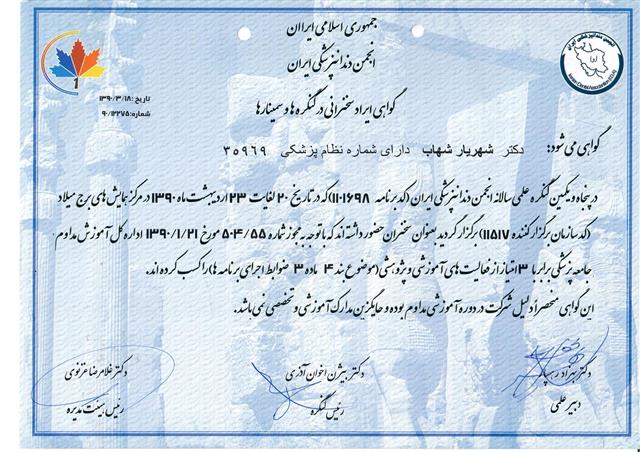 جمهوری اسلامی ایران
انجمن دندانپزشکی ایران
گواهی ایراد سخنرانی در کنگره ها و سمینارها
انجمن دندانپزشکی ایران
تاریخ :۱۳۹۰/۳/۱۸
شماره:۹۰/۱۲۲۷۵
گواهی می شود: دکتر شهریار شهاب دارای شماره نظام پزشکی ۳۵۹۶۹
در پنجاه و یکمین کنگره علمی سالانه انجمن دندانپزشکی ایران (کد برنامه ۱۱۰۱۶۹۸) که در تاریخ ۲۰ لغایت ۲۳ اردیبهشت ماه ۱۳۹۰ در مرکز همایش های برج میلاد
(کد سازمان برگزار کننده ۱۱۵۱۷) برگزار گردید بعنوان سخنران حضور داشته اند که با توجه به مجوز شماره ۵۰۴/۵۵ مورخ ۱۳۹۰/۱/۲۱ اداره کل آموزش مداوم
جامعه پزشکی برابر با ۳ امتیاز از فعالیت های آموزشی و پژوهشی (موضوع بند ۴ ماده ۳ ضوابط اجرای برنامه ها) را کسب کرده اند.
این گواهی منحصراً دلیل شرکت در دوره آموزشی مداوم بوده و جایگزین مدارک آموزشی و تخصصی نمی باشد.
دکتر بهزاد دکتر بیژن اخوان آذری دکتر غلامرضا غزنوی
دبیر علمی رئیس کنگره رئیس هیئت مدیره